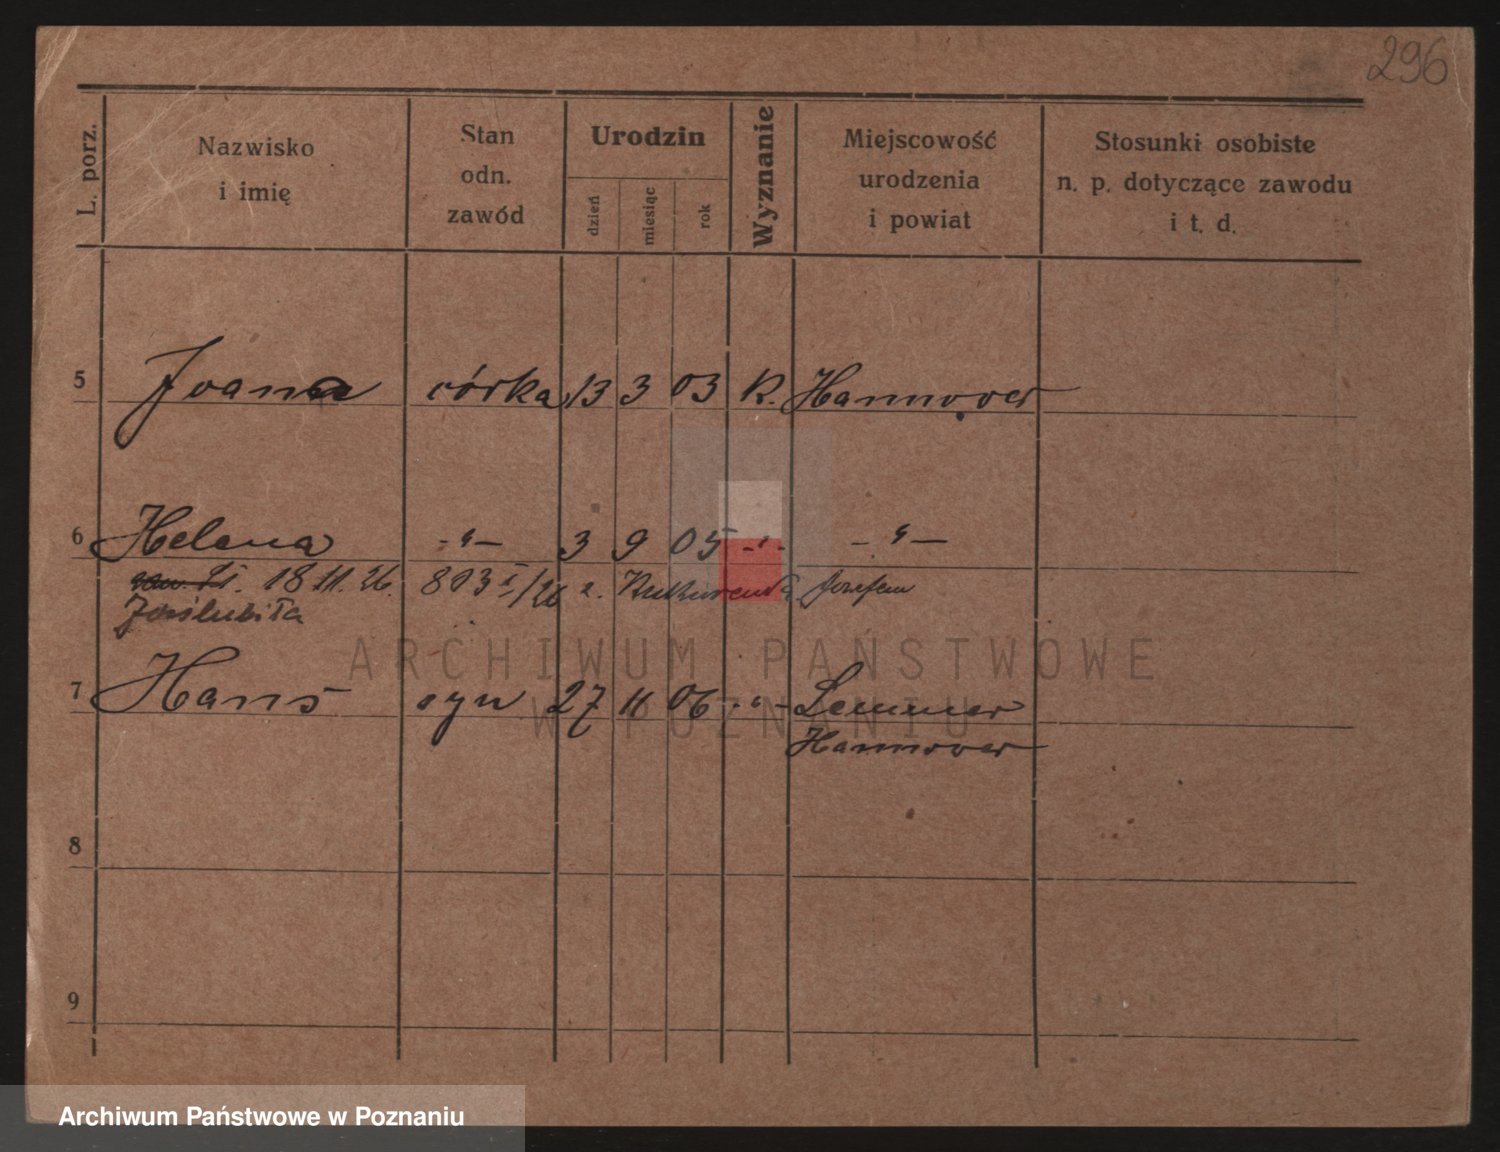 296
L. porz.
Nazwisko
i imię
Stan
odn.
zawód
Urodzin
dzień
miesiąc
rok
Wyznanie
Miejscowość
urodzenia
i powiat
Stosunki osobiste
n. p. dotyczące zawodu
i t. d.
5 Joanna córka 13 3 03 K. Hannover
6 Helena -"- 3 9 05 -"- -"-
18.11.26. 803 I/26 z. Józefem
Zaślubiła
7 Hans syn 27 11 06 -"- Lemmer
Hannover
8
9
ARCHIWUM PAŃSTWOWE
W POZNANIU
Archiwum Państwowe w Poznaniu